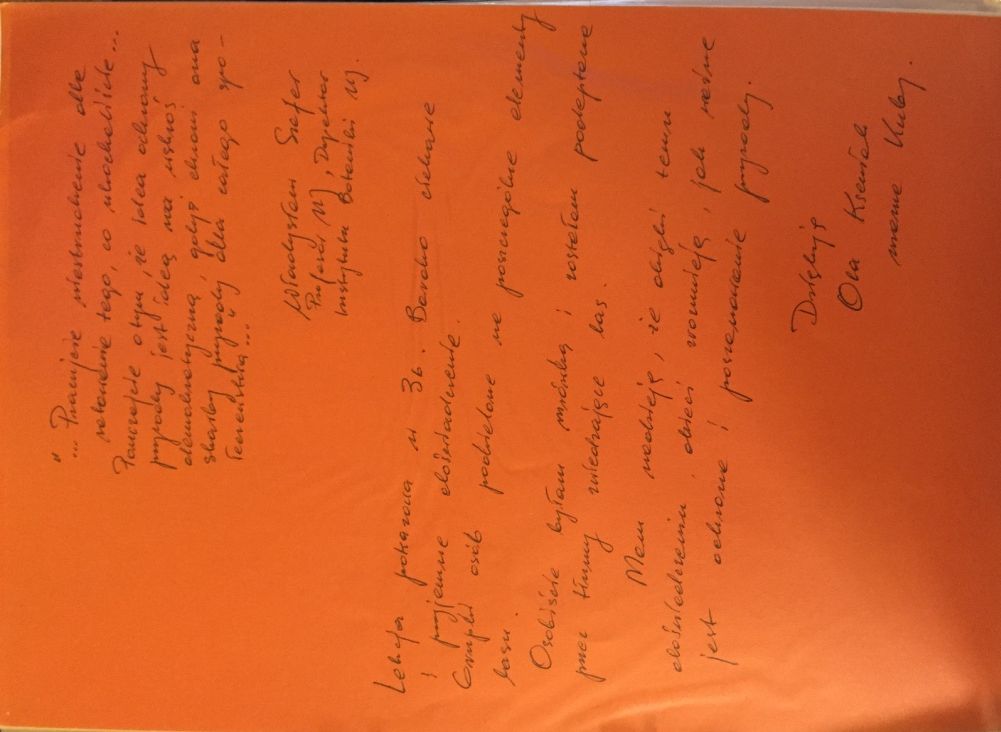 "... Pracujcie niestrudzenie dla
ratowania tego, co ukochaliście...
Pouczajcie o tym, że idea ochrony
przyrody jest ideą na wskroś
demokratyczną, gdyż chroni ona
skarby przyrody dla całego spo-
łeczeństwa..."
Władysław Szafer
Profesor UJ, Dyrektor
Instytutu Botaniki UJ.
Lekcja pokazowa u 3b. Bardzo ciekawe
i przyjemne doświadczenie.
Grupki osób podzielone na poszczególne elementy
lasu.
Osobiście byłam mrówką i zostałam podeptana
przez tłumy zwiedzające las.
Mam nadzieję, że dzięki temu
doświadczeniu dzieci rozumieją, jak ważne
jest ochrona i poszanowanie przyrody.
Dziękuję
Ola
mama Kuby.